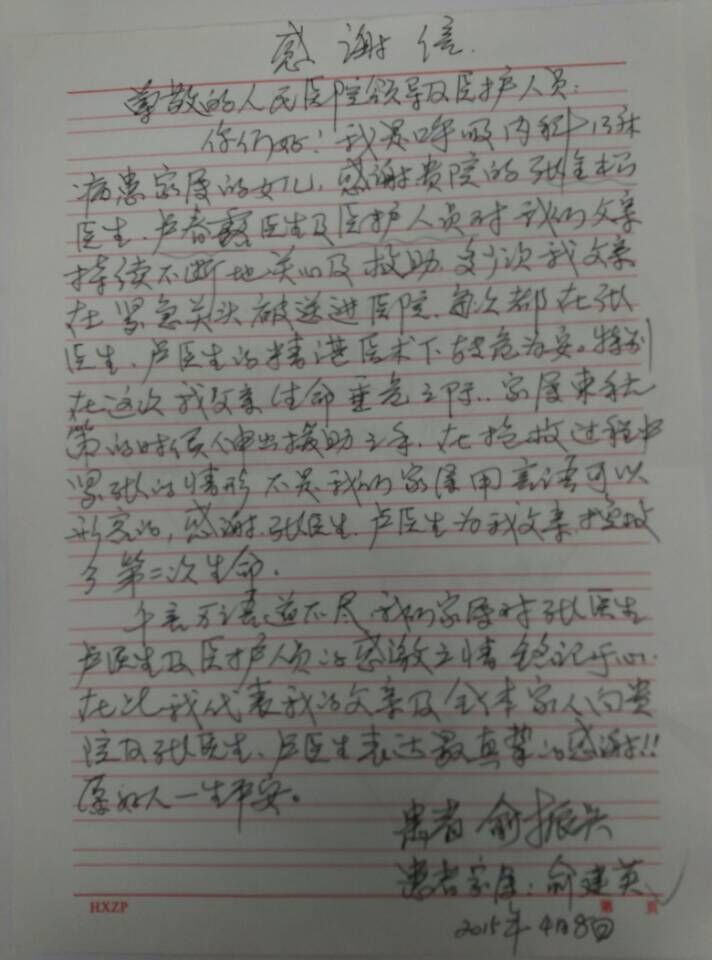 感谢信.
尊敬的人民医院领导及医护人员：
你们好！我是呼吸内科 13床
病患家属的女儿，感谢贵院的张
医生.卢春霞医生及医护人员对我们父亲
持续不断地关心及救助.多少次我父亲
在紧急关头被送进医院.每次都在张
医生.卢医生的精湛医术下转危为安。特别
在这次我父亲生命垂危之际..家属束手无
策的时候伸出援助之手.在抢救过程中
紧张的情形不是我们家属用言语可以
形容的，感谢.张医生.卢医生为我父亲
了第二次生命.
千言万语道不尽.我们家属对张医生
卢医生及医护人员的感激之情铭记于心.
在此我代表我的父亲及全体家人向贵
院及张医生、卢医生表达最真挚的感谢!!
愿好人一生平安。
患者 俞振兴
患者家属：俞建英
2015年4月8日
HXZP
第 页